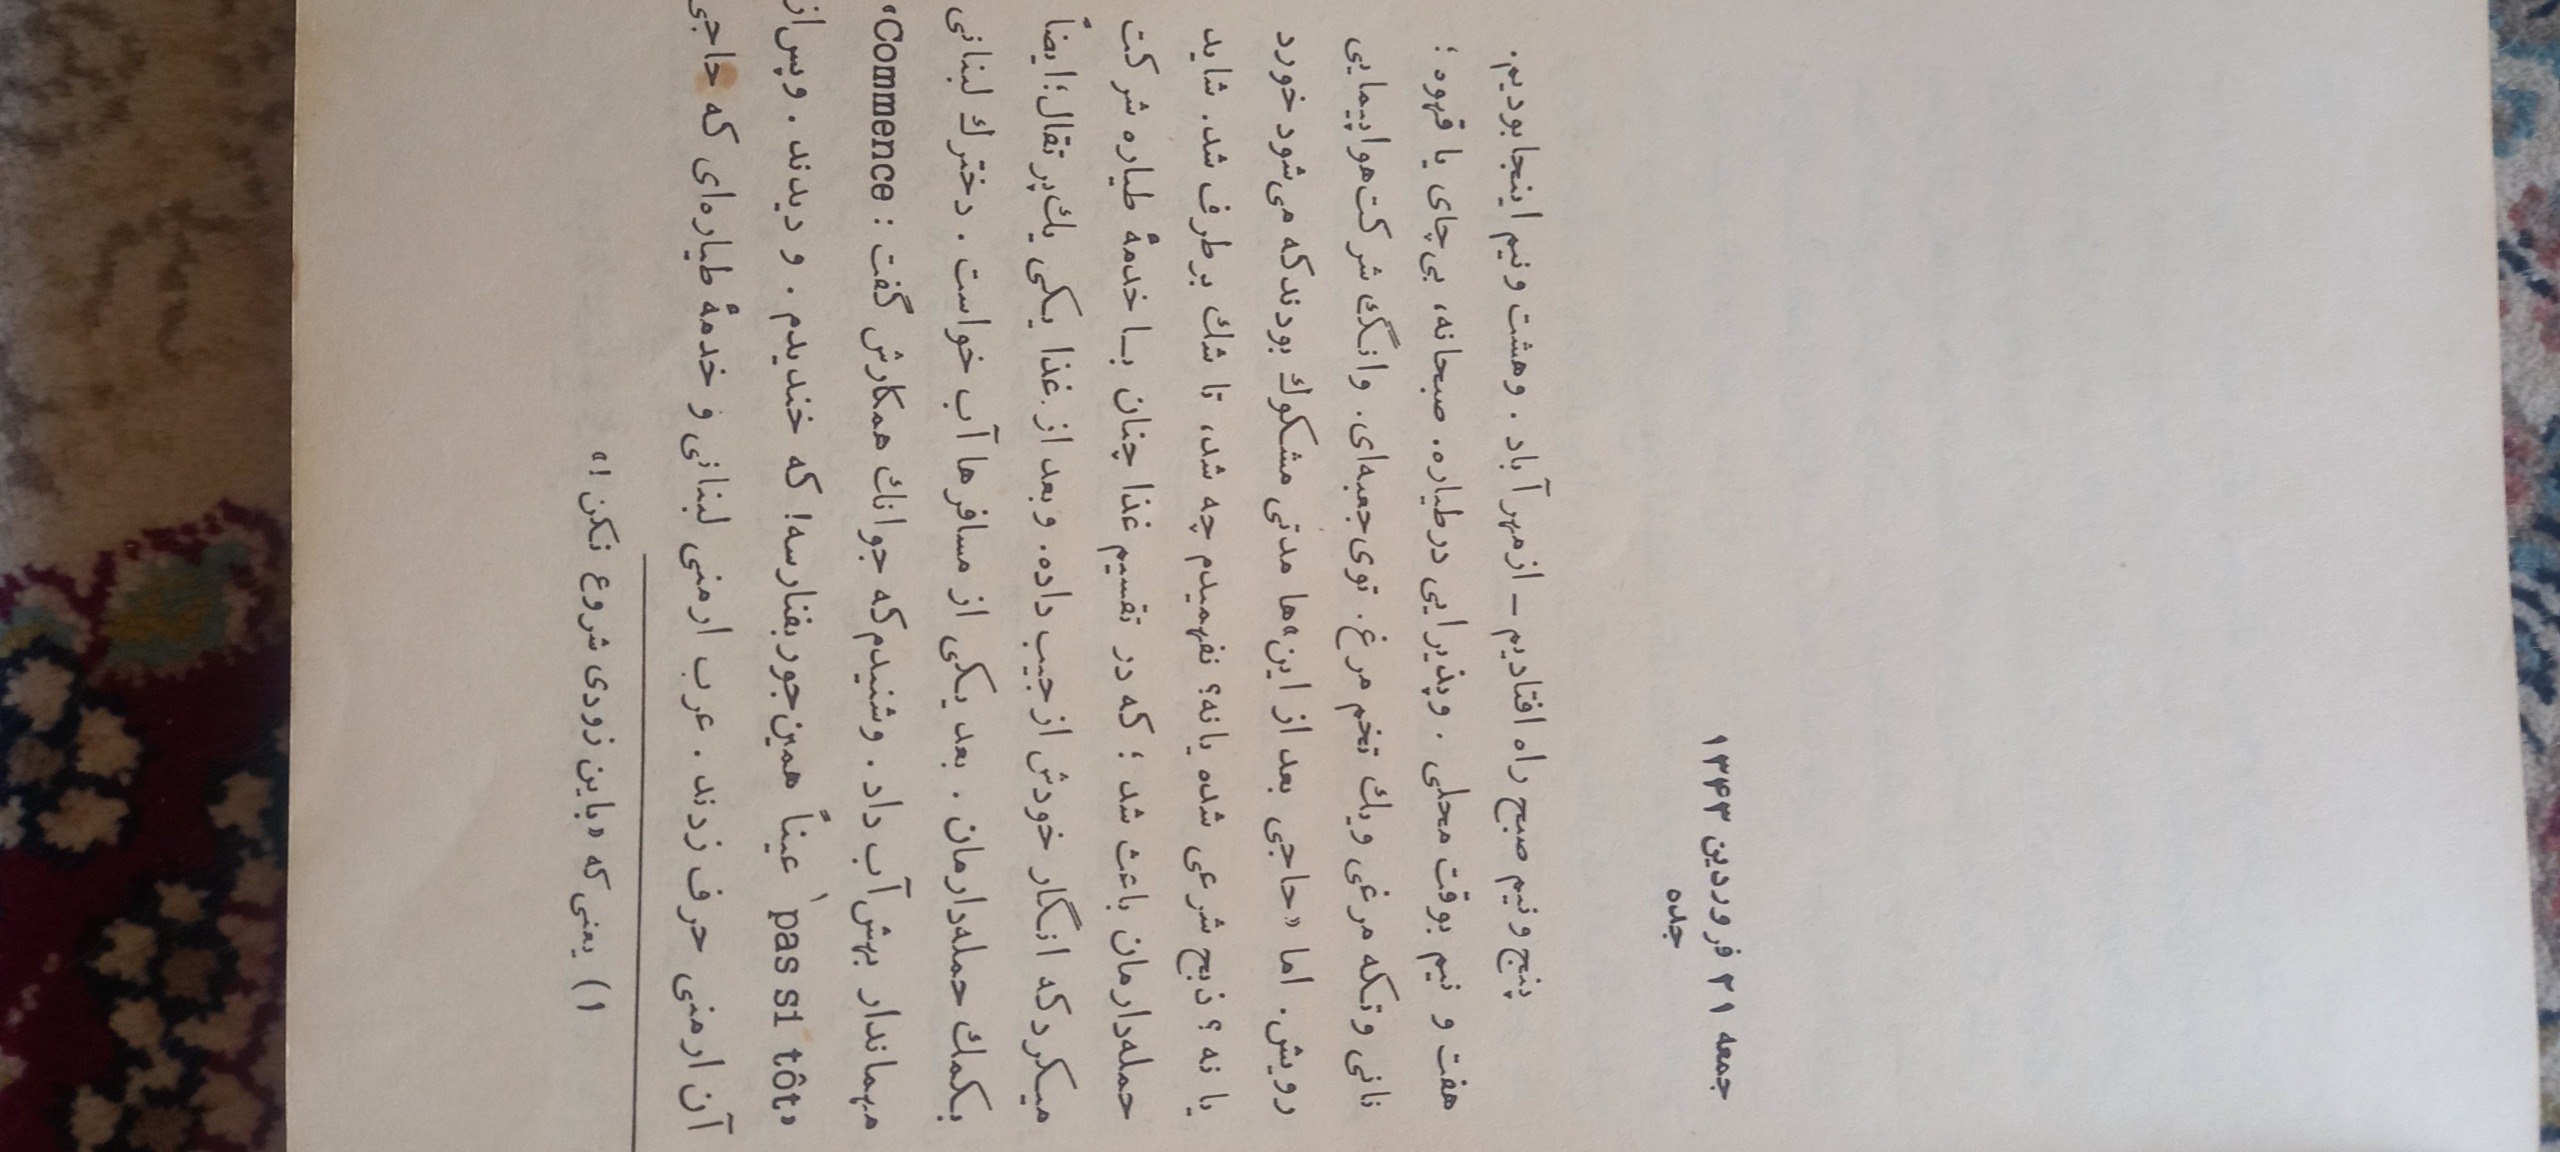 جمعه ۲۱ فروردین ۱۳۴۳
جده
پنج و نیم صبح راه افتادیم – از مهرآباد . و هشت و نیم اینجا بودیم.
هفت و نیم بوقت محلی . وپذیرایی درطیاره. صبحانه، بی‌چای یا قهوه ؛
نانی و تکه مرغی ویك تخم مرغ. توی جعبه‌ای. وانگ شرکت هواپیمایی
رویش. اما «حاجی بعد از این»ها مدتی مشکوك بودندکه می‌شود خورد
یا نه ؟ ذبح شرعی شده یا نه؟ نفهمیدم چه شد، تا شك برطرف شد. شاید
حمله‌دارمان باعث شد ؛ که در تقسیم غذا چنان بـا خدمهٔ طیاره شرکت
میکرد که انگار خودش از جیب داده. و بعد از غذا یکی یك پرتقال؛ ایضاً
بکمك حمله‌دارمان . بعد یکی از مسافرها آب خواست . دخترك لبنانی
مهماندار بهش آب داد . وشنیدم که جوانك همکارش گفت : Commence»
«pas si tôt ۱ عیناً همین‌جور بفنارسه! که خندیدم . و دیدند . و پس از
آن ارمنی حرف زدند . عرب ارمنی لبنانی و خدمهٔ طیاره‌ای که حاجی
۱) یعنی که «باین زودی شروع نکن !»